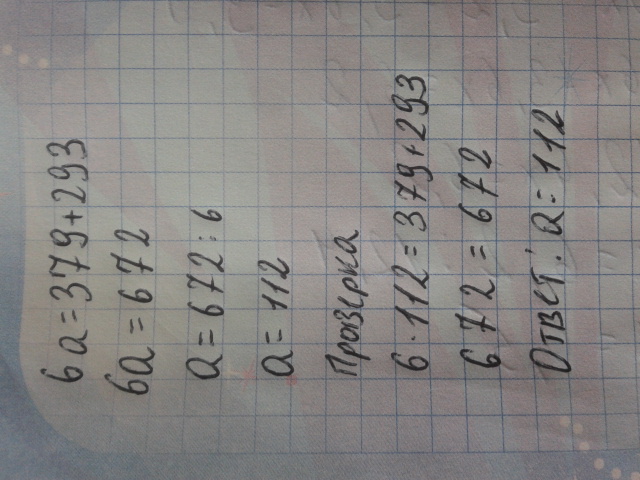 6a=379+293
6a=672
a=672:6
a=112
Проверка
6·112=379+293
672=672
Ответ: a=112